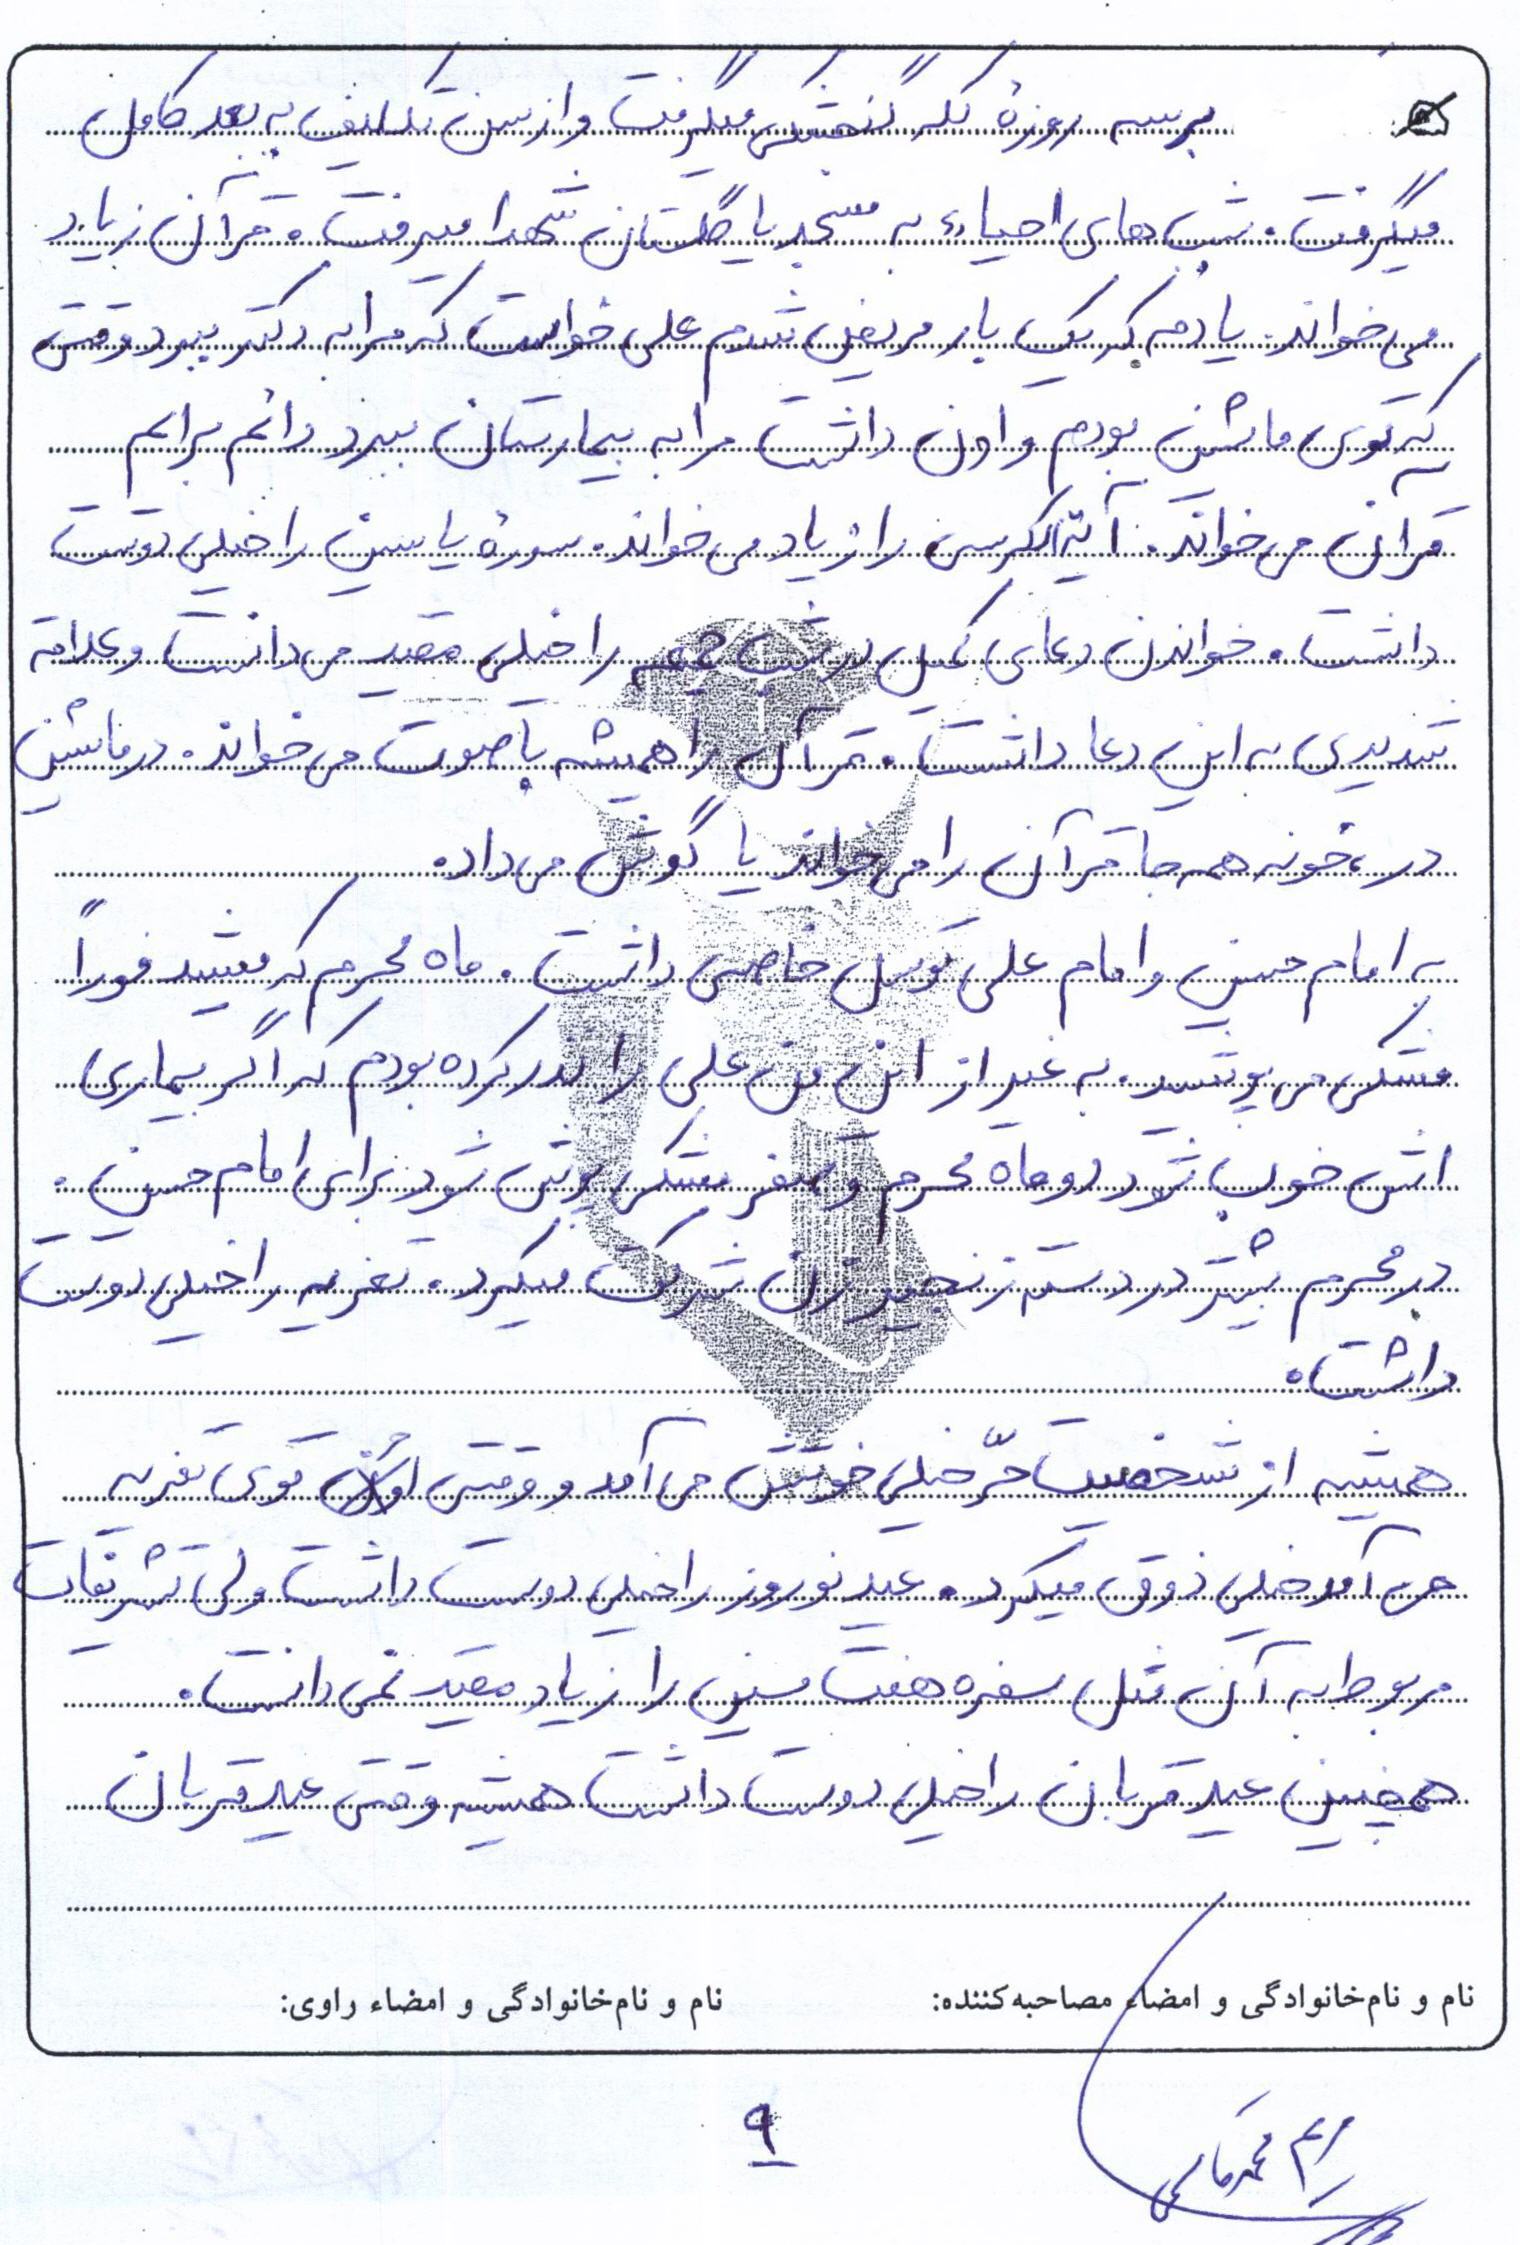 برسه روزهٔ کله گنجشکی میگرفت و از سن تکلیف به بعد کامل
میگرفت. شب های احیاء به مسجد یا گلستان شهدا میرفت. قرآن زیاد
می خواند. یادمه که یک بار مریض شدم علی خواست که مرا به دکتر ببرد وقتی
که توی ماشین بودم و اون داشت مرا به بیمارستان میبرد دائم برایم
قرآن می خواند. آیة الکرسی را زیاد می خواند. سورهٔ یاسین را خیلی دوست
داشت. خواندن دعای کمیل در شب جمعه را خیلی مقید می دانست و علاقه
شدیدی به این دعا داشت. قرآن را همیشه با صوت می خواند. در ماشین
در خونه همه جا قرآن را می خواند یا گوش می داد.
به امام حسین و امام علی توسل خاصی داشت. ماه محرم که میشد فوراً
مشکی می پوشید. به غیر از این من علی را نذر کرده بودم که اگر بیماری
اش خوب شود دو ماه محرم و صفر مشکی پوش شود برای امام حسین.
در محرم بیشتر در دسته زنجیر زن شرکت میکرد. تعزیه را خیلی دوست
داشت.
همیشه از شخصیت حرّ خیلی خوشش می آمد و وقتی حر توی تعزیه
می آمد خیلی ذوق میکرد. عید نوروز را خیلی دوست داشت ولی تشریفات
مربوط به آن مثل سفره هفت سین را زیاد مقید نمی دانست.
همچنین عید قربان را خیلی دوست داشت همیشه وقتی عید قربان
نام و نام‌خانوادگی و امضاء مصاحبه‌کننده: نام و نام‌خانوادگی و امضاء راوی:
۹
مریم محمد